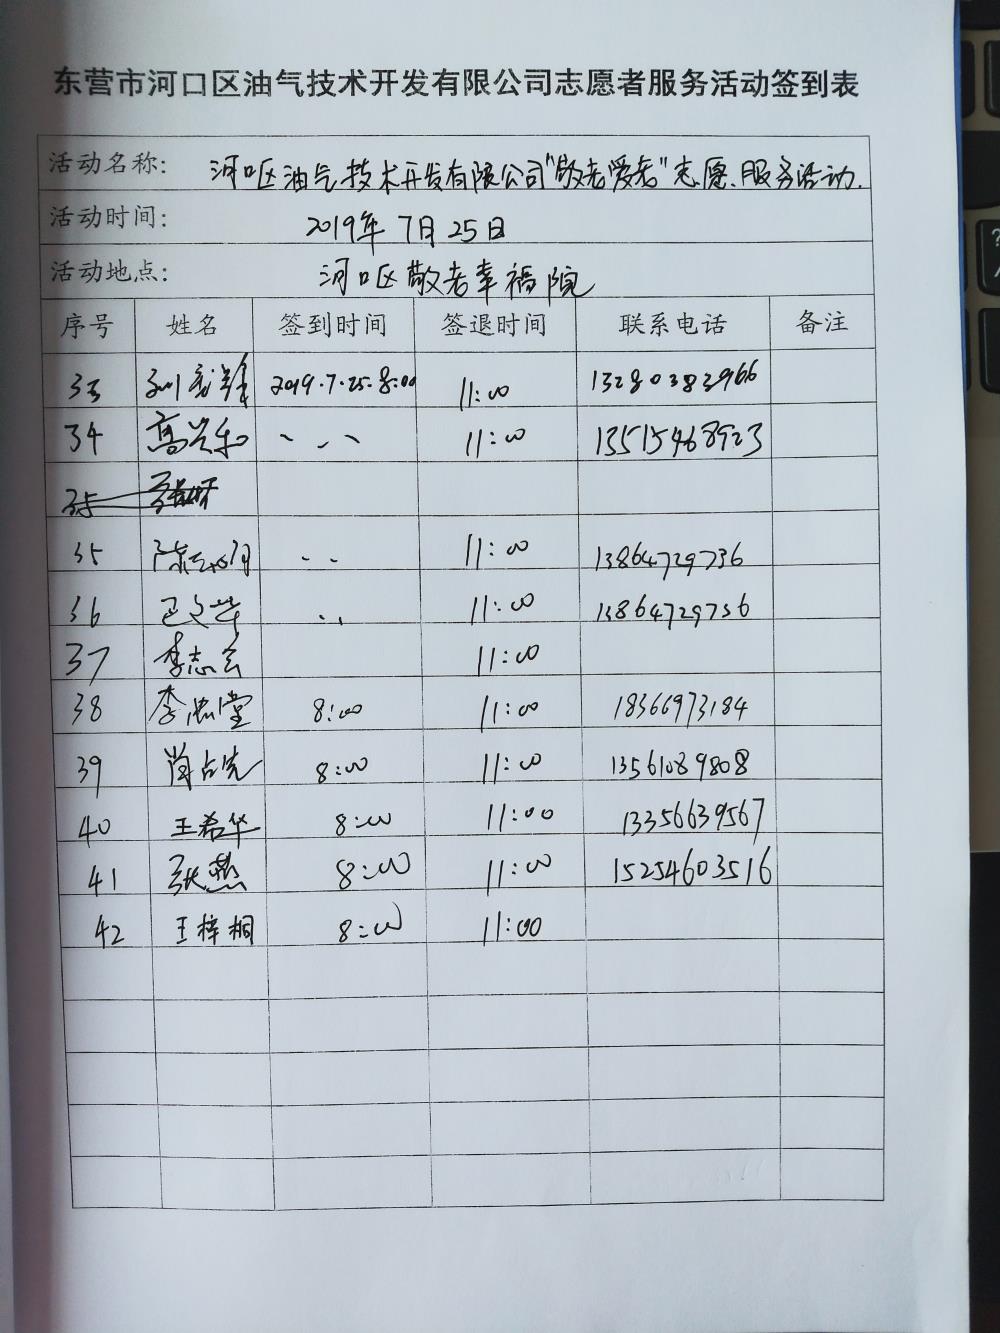 东营市河口区油气技术开发有限公司志愿者服务活动签到表
活动名称: 河口区油气技术开发有限公司"敬老爱老"志愿服务活动.
活动时间: 2019年7月25日
活动地点: 河口区敬老幸福院
序号 姓名 签到时间 签退时间 联系电话 备注
33 2019.7.25.8:00 11:00 13280383966
34 高兴和 、、、 11:00 13515468923
35
35 .. 11:00 13864729736
36 .. 11:00 13864729736
37 李志云 11:00
38 李忠堂 8:00 11:00 18366973184
39 肖占先 8:00 11:00 13561089808
40 王希华 8:00 11:00 13356639567
41 张燕 8:00 11:00 15254603516
42 王梓桐 8:00 11:00